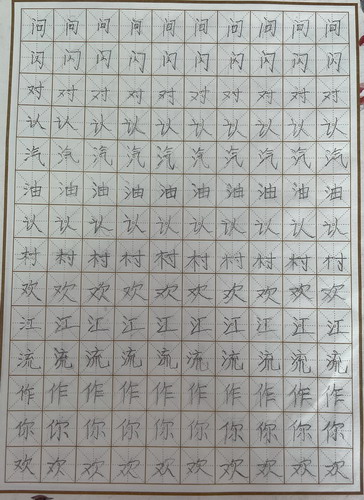 问问问问问问问问问问
闪闪闪闪闪闪闪闪闪闪
对对对对对对对对对对
认认认认认认认认认认
汽汽汽汽汽汽汽汽汽汽
油油油油油油油油油油
认认认认认认认认认认
村村村村村村村村村村
欢欢欢欢欢欢欢欢欢欢
江江江江江江江江江江
流流流流流流流流流流
作作作作作作作作作作
你你你你你你你你你你
欢欢欢欢欢欢欢欢欢欢